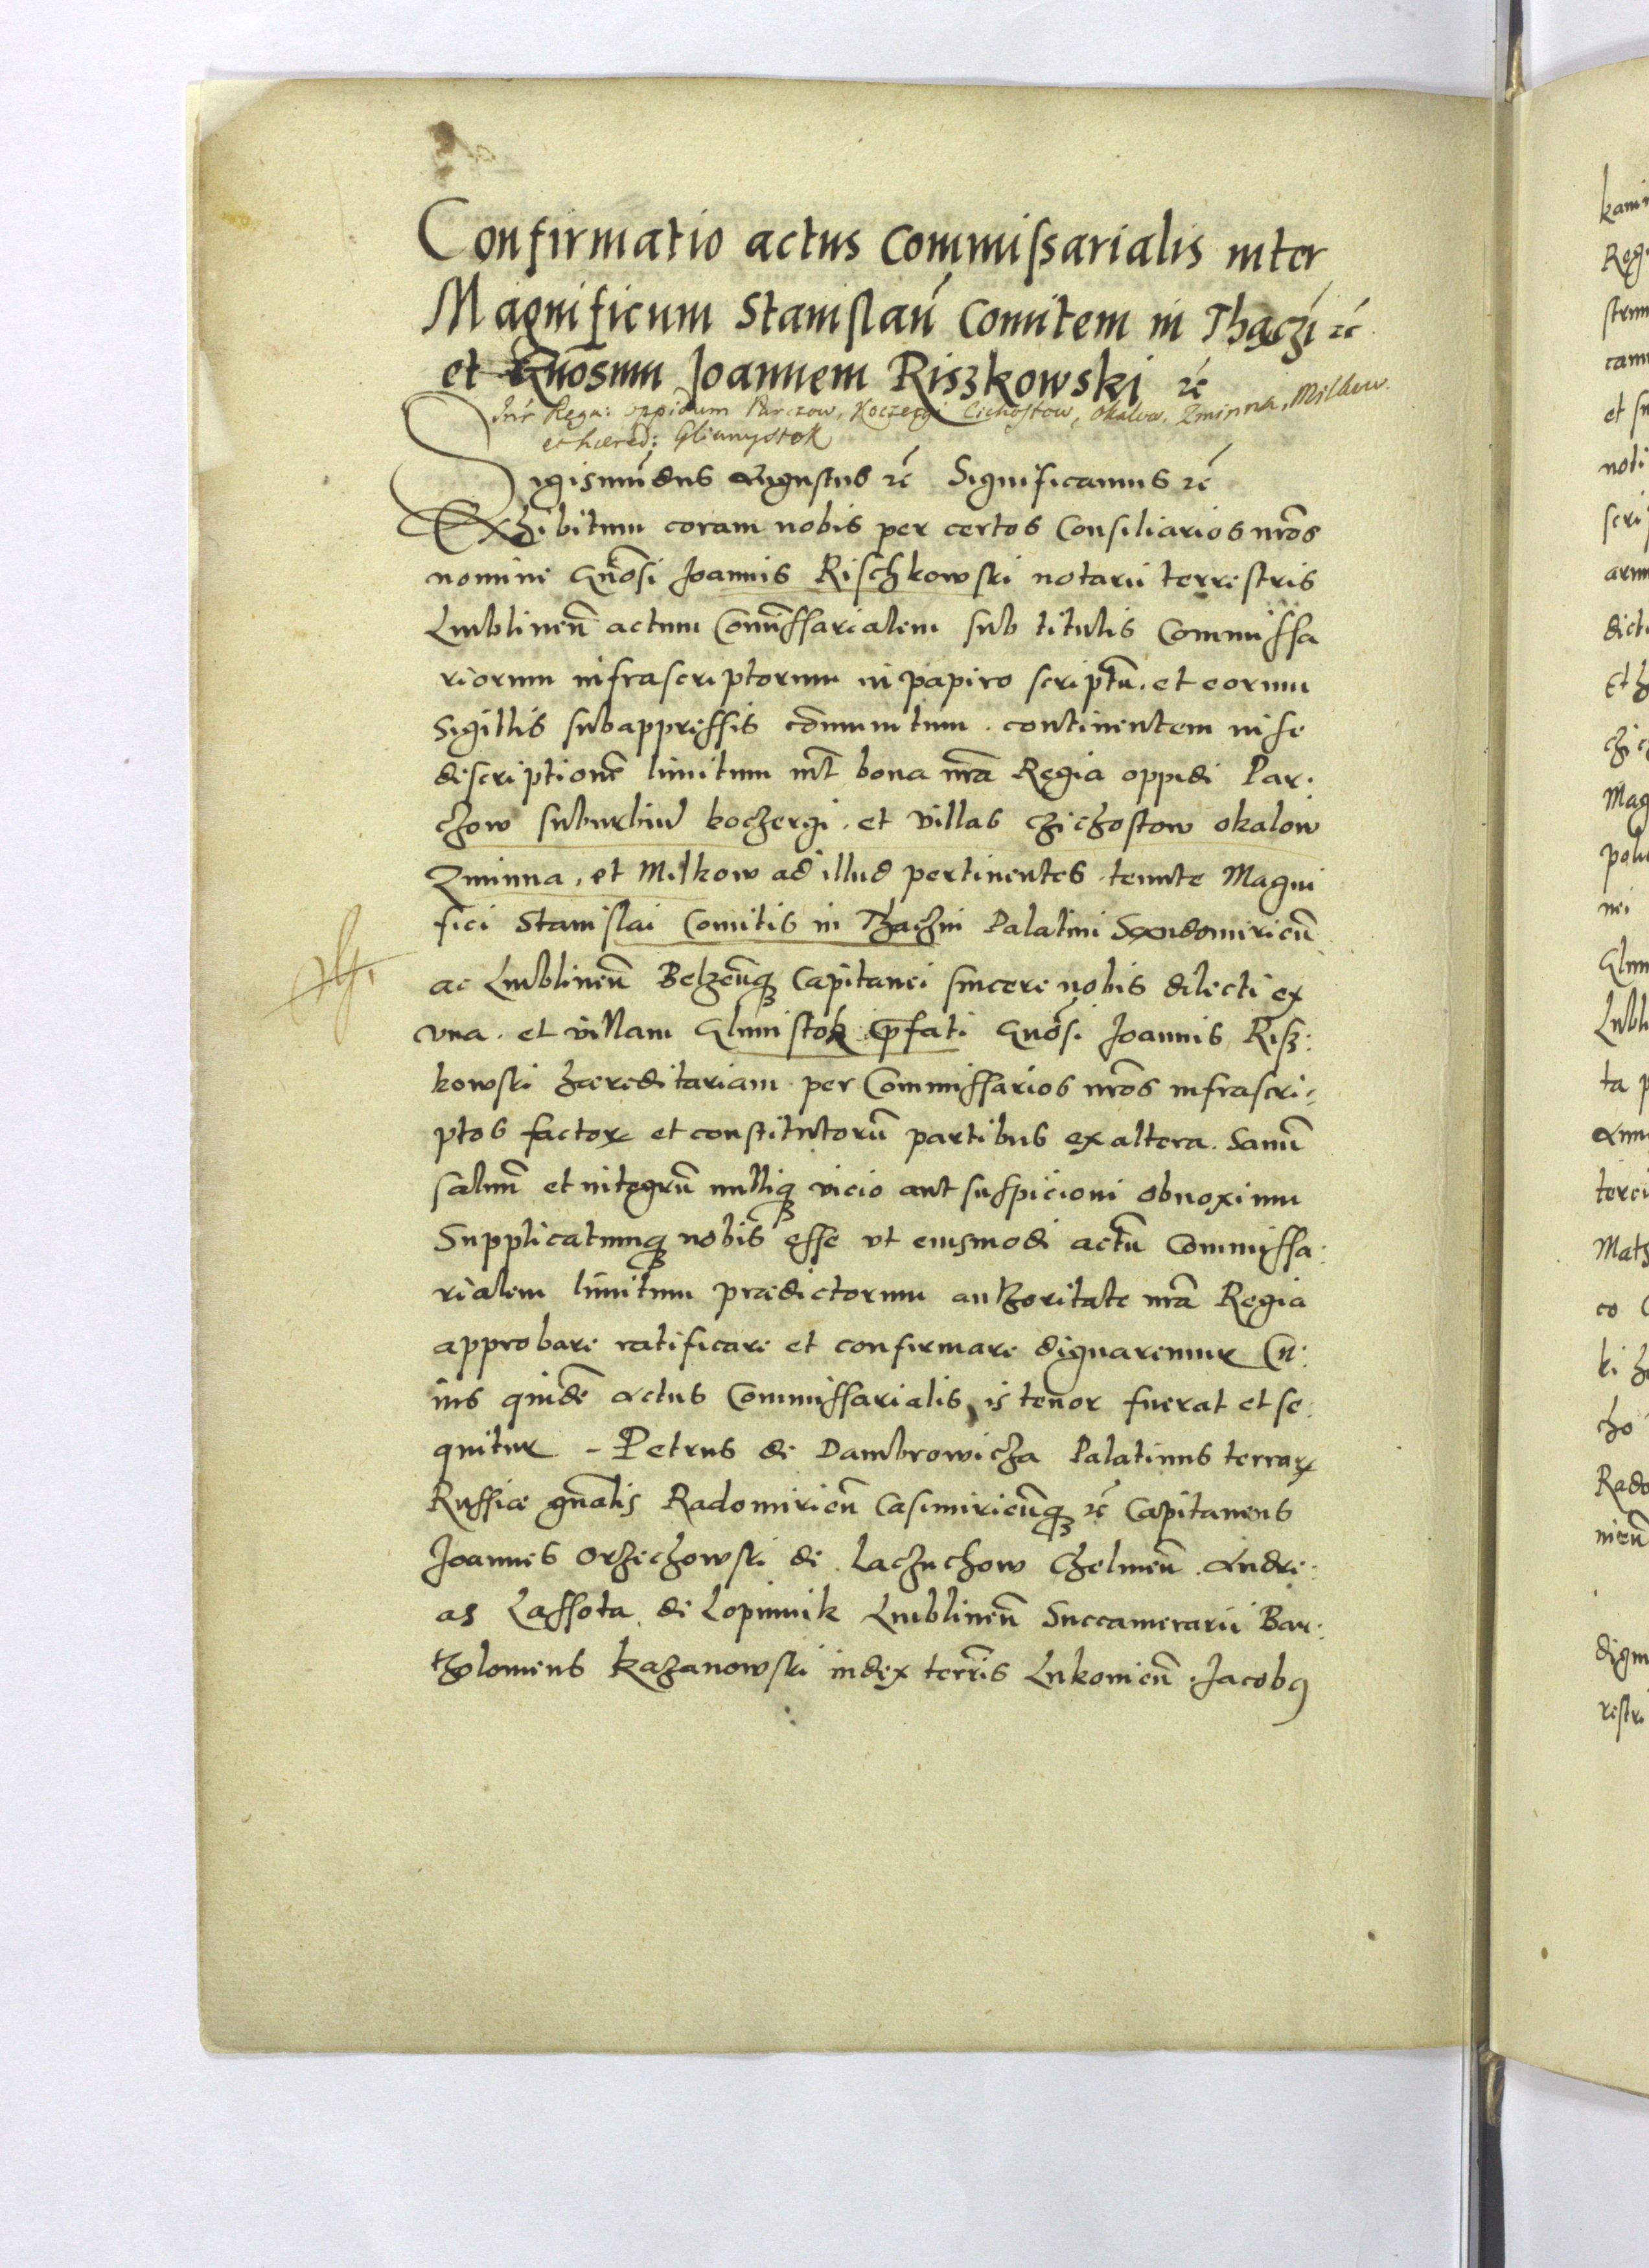 Confirmatio actus Commissarialis inter
Magnificum Stanislaū Comitem in Thaczī rc̄
et Gn̄osum Joannem Riszkowski rc̄
Intr Rega: oppidum Parczow, Koczergi Cichostow, Okalew, Zminna, Milkow.
et hæred: Gliennystok
Sigismūdus Augustus rc̄ Significamus rc̄
Exhibitum coram nobis per certos Consiliarios nr̄os
nomine Gn̄osi Joannis Rischkowski notarii terrestris
Lublineñ actum Com̄issarialem sub titulis Commissa
riorum infrascriptorum in papiro scriptū. et eorum
Sigillis subappressis cōmunitum. continentem in se
descriptionē limitum int̄ bona nr̄a Regia oppidi Par:
chow suburbiū koczergi. et villas Czichostow okalow
Zminna, et Milkow ad illud pertinentes. tenute Magni
fici Stanislai Comitis in Thaczin Palatini Sandomirieñ
ac Lublineñ Belzeñq3 Capitanei sincere nobis dilecti ex
vna. et villam Glinistok p̄fati Gn̄osi Joannis Risz:
kowski hæreditariam. per Commissarios nr̄os infrascri:
ptos factor et constitutorū partibus ex altera. Sanū
saluū et integrū nulliq3 vicio aut suspicioni obnoxium
Supplicatumq3 nobis esse vt eiusmodi actū Commissa:
rialem limitum prædictorum authoritate nr̄a Regia
approbare ratificare et confirmare dignaremur Cu:
ius quidē actus Commissarialis is tenor fuerat et se:
quitur – Petrus de Dambrowicza Palatinus terrar
Russiæ gn̄alis Radomirieñ Casimirieñq3 rc̄ Capitaneus
Joannes Orzechowski de Laczuchow Chelmeñ. Andre:
as Lassota de Lopiennik Lublineñ Succamerarii Bar:
tholomeus Kazanowski iudex terr̄is Lukouieñ. Jacob9